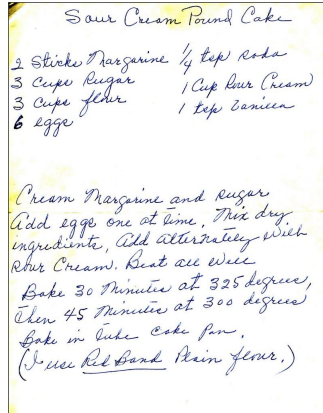 Sour Cream Pound Cake
2 Sticks Margarine 1/4 tsp soda
3 cups sugar 1 Cup Sour Cream
3 cups flour 1 tsp Vanilla
6 eggs
Cream Margarine and sugar
Add eggs one at time, Mix dry
ingredients, Add Alternately with
Sour Cream. Beat all well
Bake 30 Minutes at 325 degrees,
then 45 Minutes at 300 degrees
Bake in tube cake Pan.
(I use Red Band Plain flour.)